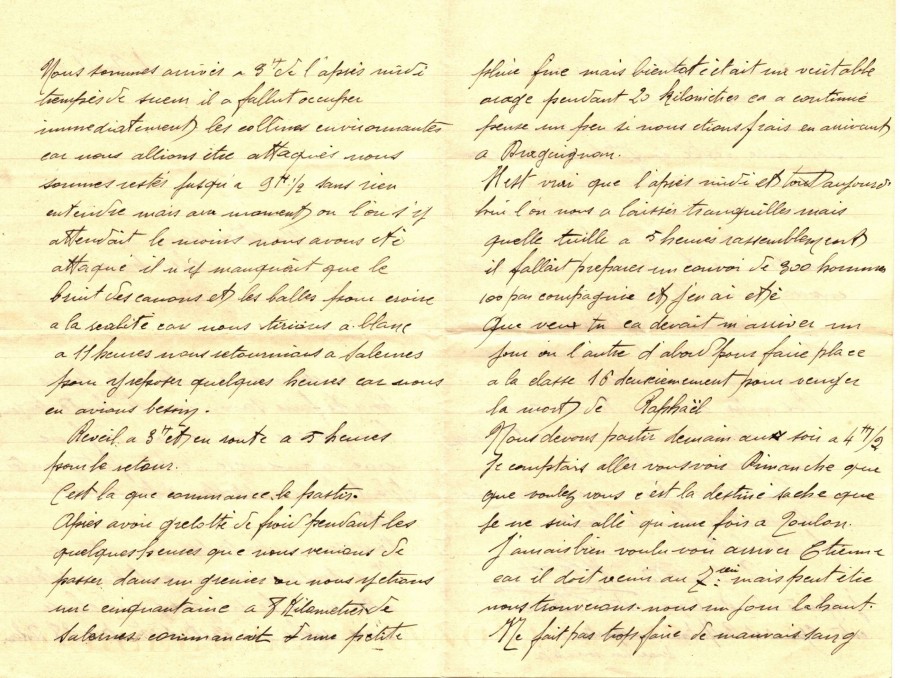 Nous sommes arrivés a 3 H de l'après midi
trempés de sueur il a fallut occuper
immediatement les collines environnantes
car nous allions être attaqués nous
sommes restés jusqu'a 9 H 1/2 sans rien
entendre mais au moment ou l'on s'y
attendait le moins nous avons été
attaqué il n'y manquait que le
bruit des canons et les balles pour croire
a la realité car nous tirions a blanc
a 11 heures nous retournions a Salernes
pour y reposer quelques heures car nous
en avions besoin.
Reveil a 3 H et en route a 5 heures
pour le retour.
C'est la que commance le
Après avoir grelotté de froid pendant les
quelques heures que nous venions de
passer dans un grenier ou nous y etions
une cinquantaine a 8 Kilometres de
Salernes commancait d'une petite
pluie fine mais bientot c'était un veritable
orage pendant 20 kilometres ca a continué
pense un peu si nous etions frais en arrivant
a Draguignan.
Il est vrai que l'après midi et tout aujourd-
hui l'on nous a laissés tranquilles mais
quelle tuille a 5 heures rassemblement
il fallait preparer un convoi de 300 hommes
100 par compagnie et j'en ai eté
Que veux tu ca devait m'arriver un
jour ou l'autre d'abord pour faire place
a la classe 16 deuxiemement pour venger
la mort de Raphaël
Nous devons partir demain au soir a 4 H 1/2
Je comptais aller vous voir Dimanche que
que voulez vous c'est la destiné sache que
je ne suis allé qu'une fois a Toulon.
J'amais bien voulu voir arriver Etienne
car il doit venir au 7 mais peut etre
nous trouverons-nous un jour la haut.
Ne fait pas trop faire de mauvais sang